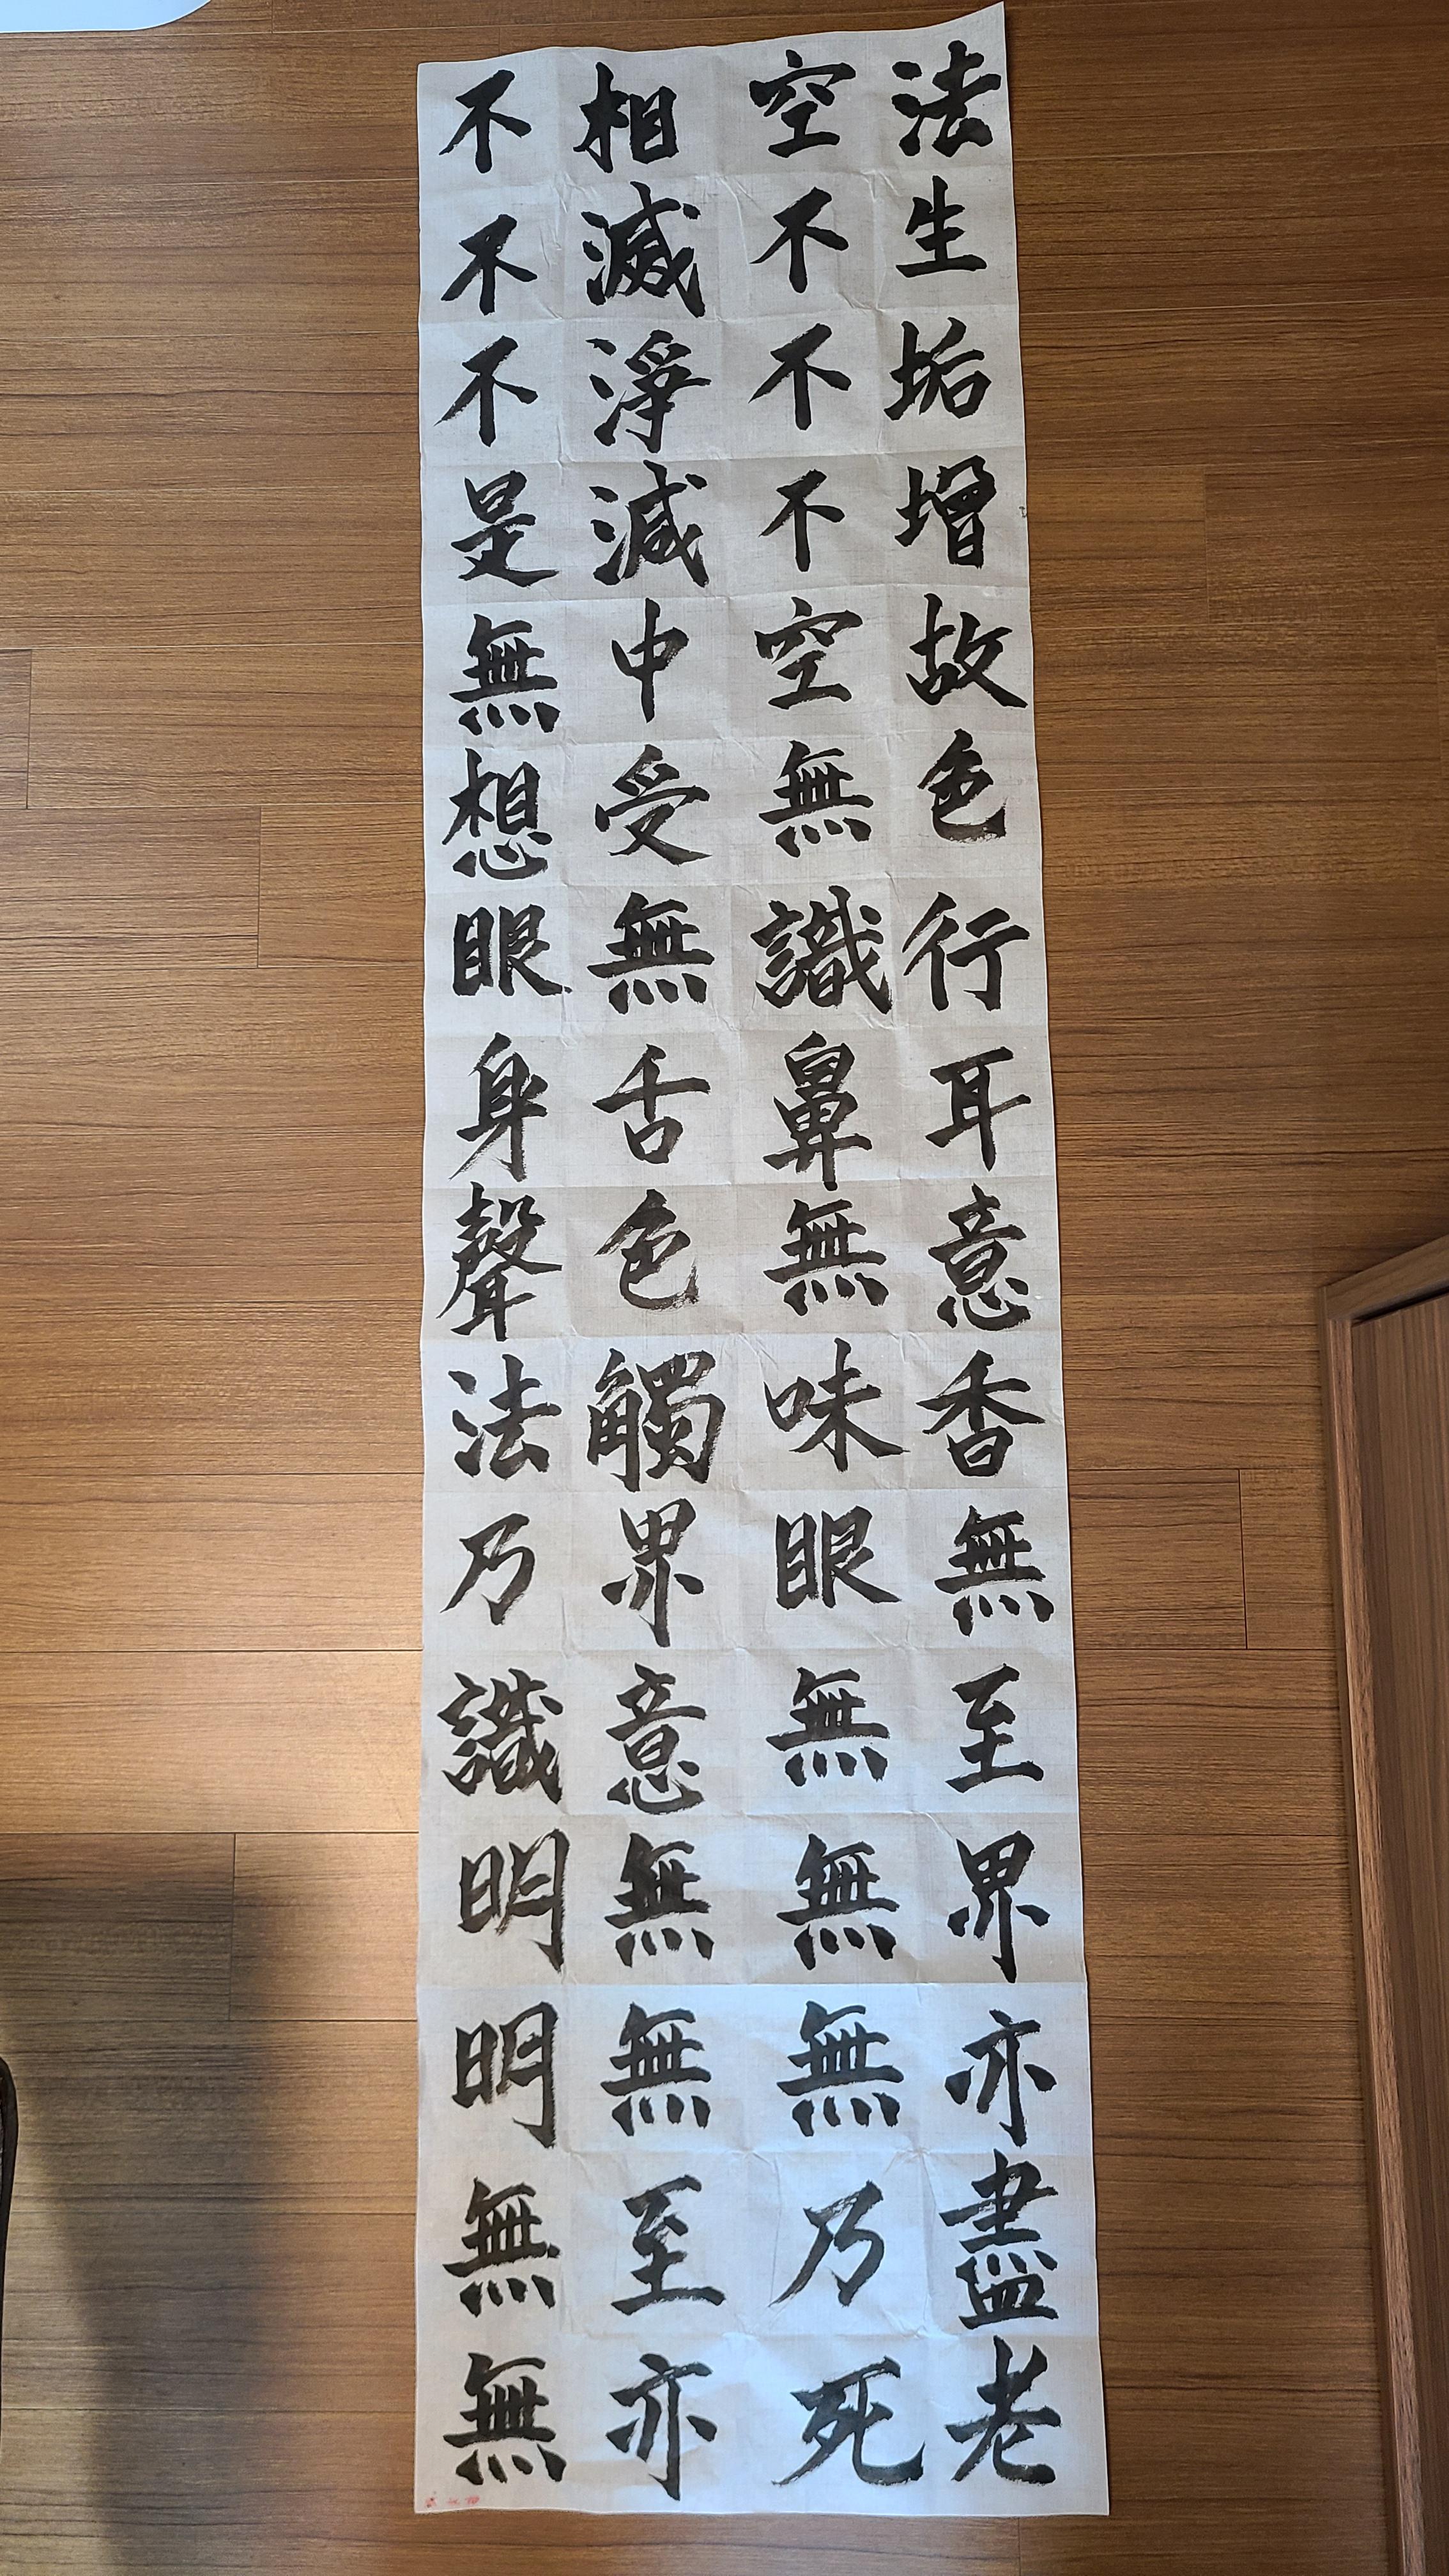 法空相不
生不滅不
垢不淨不
增不減是
故空中無
色無受想
行識無眼
耳鼻舌身
意無色聲
香味觸法
無眼界乃
至無意識
界無無明
亦無無明
盡乃至無
老死亦無